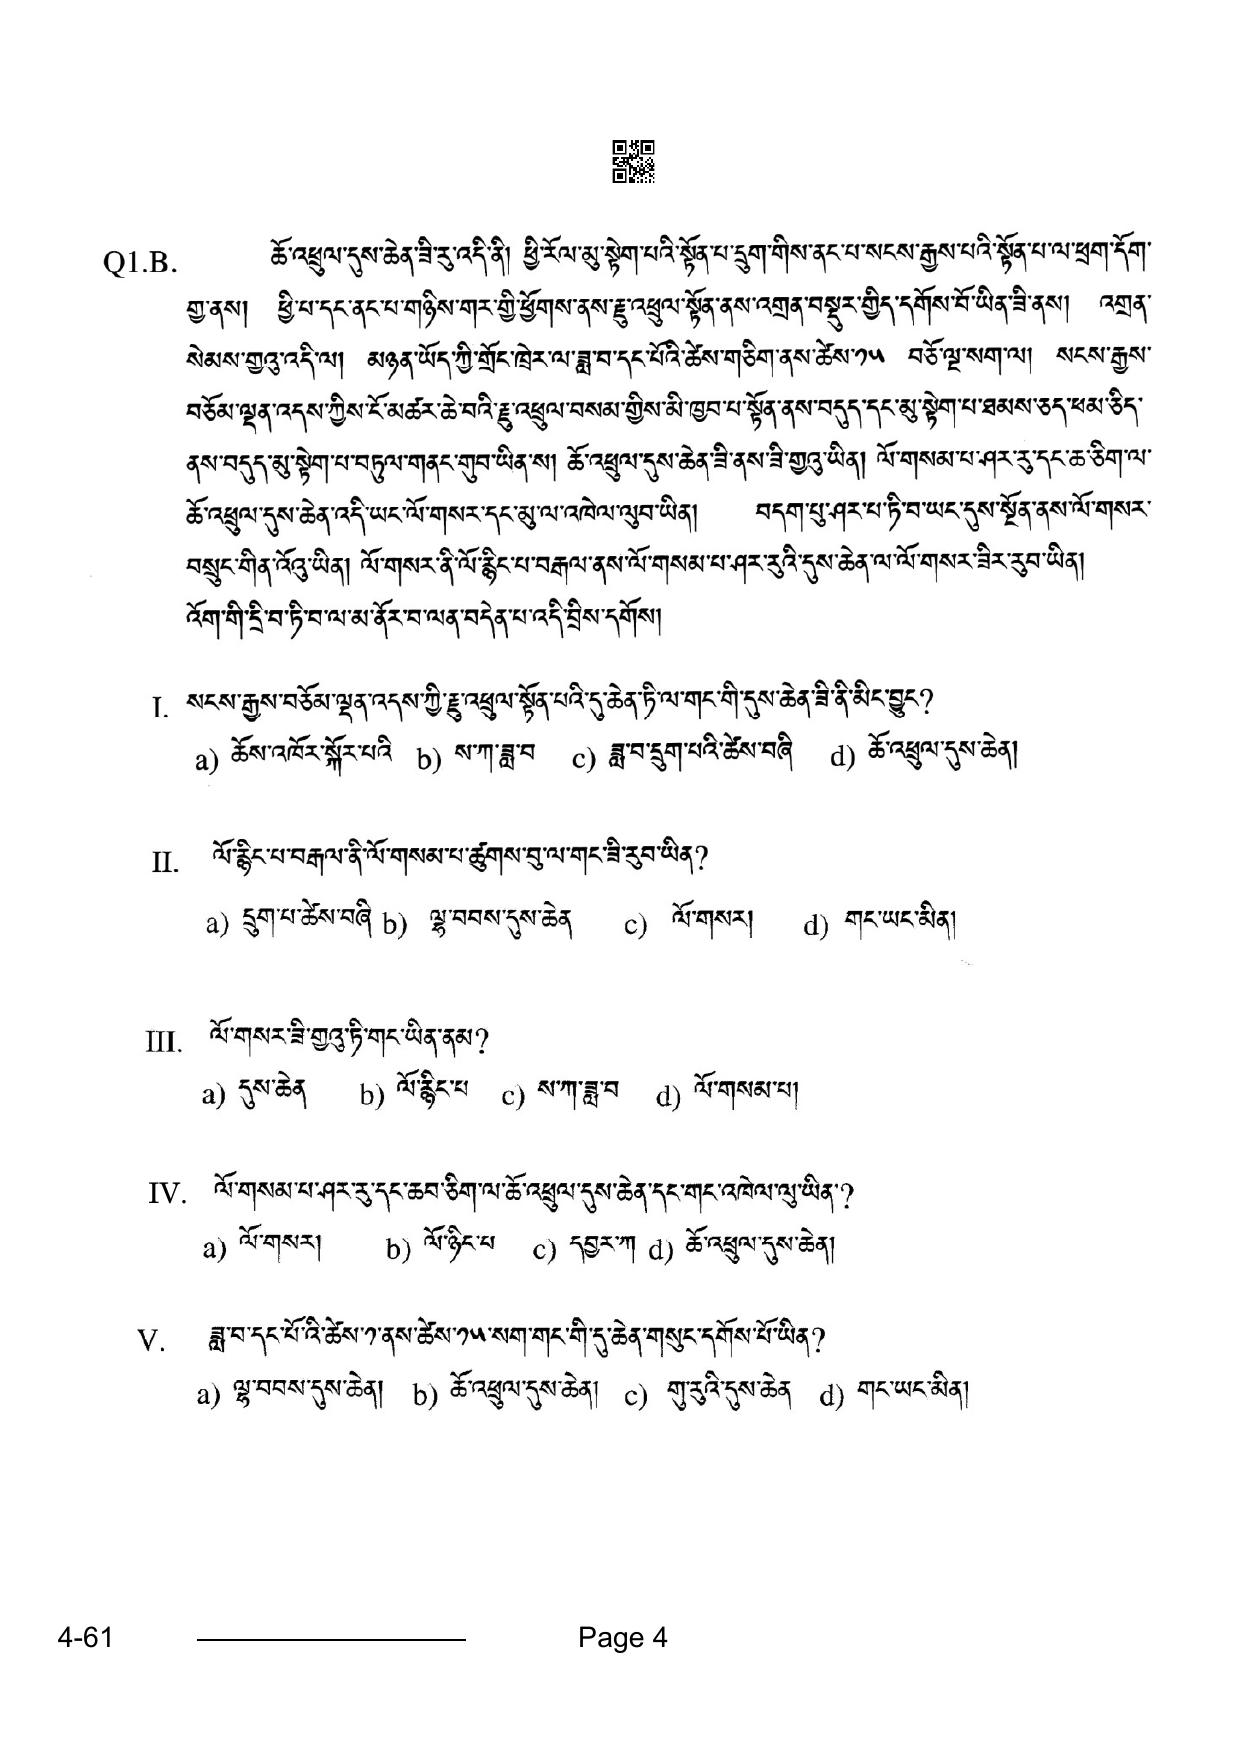 Q1.B. ཆོ་འཕྲུལ་དུས་ཆེན་ཟི་རུ་འདི་ནི། ཕྱི་རོལ་མུ་སྟེག་པའི་སྟོན་པ་དྲུག་གིས་ནང་པ་སངས་རྒྱས་པའི་སྟོན་པ་ལ་ཕྲག་དོག་
གྱ་ནས། ཕྱི་པ་དང་ནང་པ་གཉིས་གར་གྱི་ཕྱོགས་ནས་རྫུ་འཕྲུལ་སྟོན་ནས་འགྲན་བསྡུར་གྱིད་དགོས་བོ་ཡིན་ཟི་ནས། འགྲན་
སེམས་གྱའུ་འདི་ལ། མཉན་ཡོད་ཀྱི་གྲོང་ཁྲེར་ལ་ཟླ་བ་དང་པོའི་ཚེས་གཅིག་ནས་ཚེས་༡༥ བཅོ་ལྔ་སག་ལ། སངས་རྒྱས་
བཅོམ་ལྡན་འདས་ཀྱིས་ངོ་མཚར་ཆེ་བའི་རྫུ་འཕྲུལ་བསམ་གྱིས་མི་ཁྱབ་པ་སྟོན་ནས་བདུད་དང་མུ་སྟེག་པ་ཐམས་ཅད་ཕམ་ཅིད་
ནས་བདུད་མུ་སྟེག་པ་བཏུལ་གནང་གུབ་ཡིན་ས། ཆོ་འཕྲུལ་དུས་ཆེན་ཟི་ནས་ཟི་གྱའུ་ཡིན། ལོ་གསམ་པ་ཤར་རུ་དང་ཆ་ཅིག་ལ་
ཆོ་འཕྲུལ་དུས་ཆེན་འདི་ཡང་ལོ་གསར་དང་མུ་ལ་འཁེལ་ལུབ་ཡིན། བདག་པུ་ཤར་པ་ཏི་བ་ཡང་དུས་སྔོན་ནས་ལོ་གསར་
བསྲུང་གིན་འོའུ་ཡིན། ལོ་གསར་ནི་ལོ་རྙིང་པ་བརྒལ་ནས་ལོ་གསམ་པ་ཤར་རུའི་དུས་ཆེན་ལ་ལོ་གསར་ཟེར་རུབ་ཡིན།
འོག་གི་དྲི་བ་ཏི་བ་ལ་མ་ནོར་བ་ལན་བདེན་པ་འདི་བྲིས་དགོས།
I. སངས་རྒྱས་བཅོམ་ལྡན་འདས་ཀྱི་རྫུ་འཕྲུལ་སྟོན་པའི་དུ་ཆེན་ཏི་ལ་གང་གི་དུས་ཆེན་ཟི་ནི་མིང་བྱུང?
a) ཆོས་འཁོར་སྐོར་པའི b) ས་ཀ་ཟླ་བ c) ཟླ་བ་དྲུག་པའི་ཚེས་བཞི d) ཆོ་འཕྲུལ་དུས་ཆེན།
II. ལོ་རྙིང་པ་བརྒལ་ནི་ལོ་གསམ་པ་ཚུགས་བུ་ལ་གང་ཟི་རུབ་ཡིན?
a) དྲུག་པ་ཚེས་བཞི b) ལྷ་བབས་དུས་ཆེན c) ལོ་གསར། d) གང་ཡང་མིན།
III. ལོ་གསར་ཟི་གྱའུ་ཏི་གང་ཡིན་ནམ?
a) དུས་ཆེན b) ལོ་རྙིང་པ c) ས་ཀ་ཟླ་བ d) ལོ་གསམ་པ།
IV. ལོ་གསམ་པ་ཤར་རུ་དང་ཆབ་ཅིག་ལ་ཆོ་འཕྲུལ་དུས་ཆེན་དང་གང་འཁེལ་ལུ་ཡིན་?
a) ལོ་གསར། b) ལོ་ཉིང་པ c) དབྱར་ཀ d) ཆོ་འཕྲུལ་དུས་ཆེན།
V. ཟླ་བ་དང་པོའི་ཚེས་༡་ནས་ཚེས་༡༥་སག་གང་གི་དུ་ཆེན་གསུང་དགོས་པོ་ཡིན?
a) ལྷ་བབས་དུས་ཆེན། b) ཆོ་འཕྲུལ་དུས་ཆེན། c) གུ་རུའི་དུས་ཆེན d) གང་ཡང་མིན།
4-61 Page 4